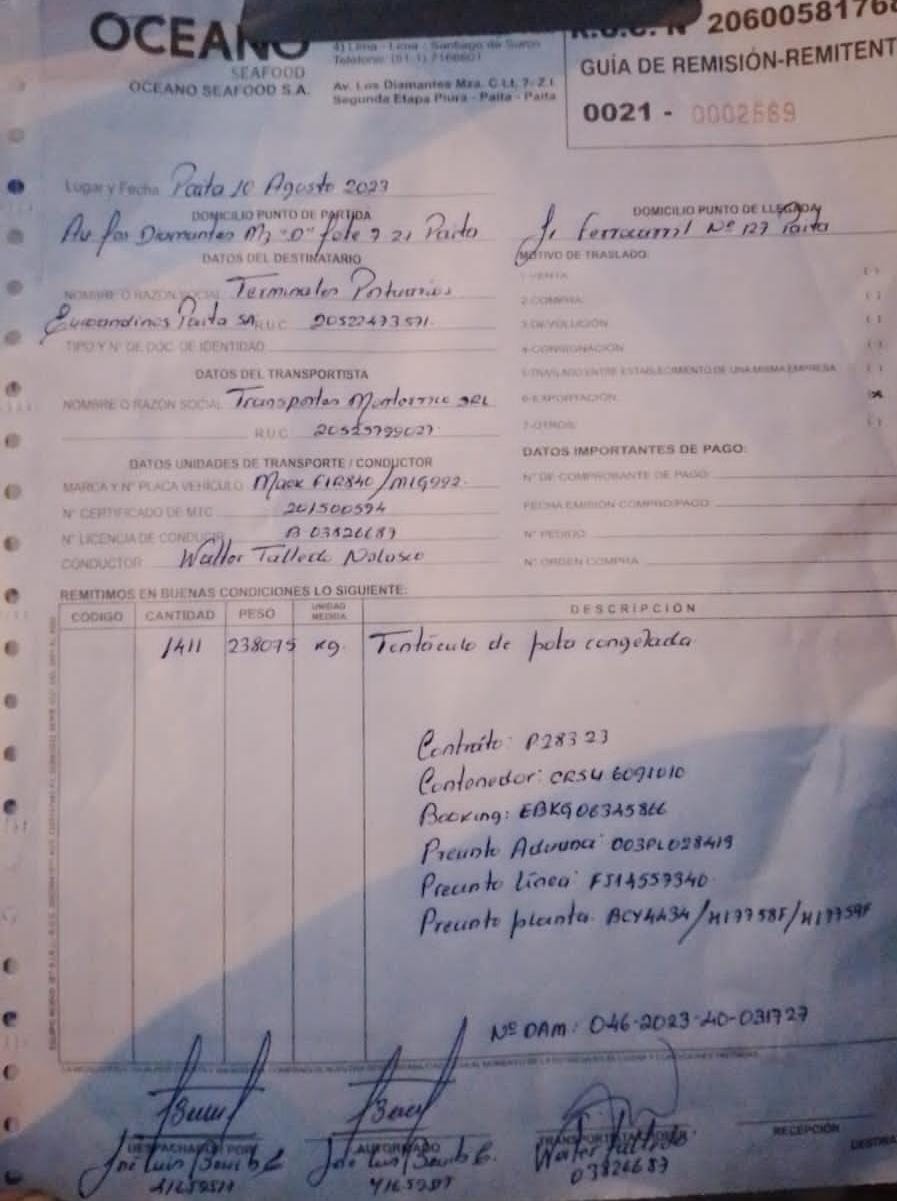 OCEANO
SEAFOOD
OCEANO SEAFOOD S.A.
4) Lima - Lima - Santiago de Surco
Av. Los Diamantes Mza. C Lt. 7- Z.I.
Segunda Etapa Piura - Paita - Paita
R.U.C. N° 2060058176
GUÍA DE REMISIÓN-REMITENT
0021 - 0002569
Lugar y Fecha Paita 10 Agosto 2023
DOMICILIO PUNTO DE PARTIDA
Paita
DOMICILIO PUNTO DE LLEGADA
Nº 127 Paita
DATOS DEL DESTINATARIO
NOMBRE O RAZON SOCIAL Terminales Portuarios
Euroandinos Paita SA R.U.C. 20522473571
TIPO Y N° DE DOC. DE IDENTIDAD
MOTIVO DE TRASLADO:
1-VENTA ( )
2-COMPRA ( )
3-DEVOLUCIÓN ( )
4-CONSIGNACIÓN ( )
5-TRASLADO ENTRE ESTABLECIMIENTO DE UNA MISMA EMPRESA ( )
6-EXPORTACIÓN x
7-OTROS ( )
DATOS DEL TRANSPORTISTA
NOMBRE O RAZON SOCIAL Transportes SRL
R.U.C. 20525799027
DATOS UNIDADES DE TRANSPORTE / CONDUCTOR
MARCA Y N° PLACA VEHÍCULO Mack
N° CERTIFICADO DE MTC 201500594
N° LICENCIA DE CONDUCIR B 03826687
CONDUCTOR Walter Nolasco
DATOS IMPORTANTES DE PAGO:
N° DE COMPROBANTE DE PAGO:
FECHA EMISIÓN COMPRO/PAGO:
N° PEDIDO:
N° ORDEN COMPRA
REMITIMOS EN BUENAS CONDICIONES LO SIGUIENTE:
CODIGO CANTIDAD PESO UNIDAD MEDIDA DESCRIPCION
1411 238075 Kg. Tentáculo de pota congelada
Contrato: P28323
Contenedor: CRSU 6091010
Booking: EBKG06345866
Precinto Aduana: 003PL028419
Precinto línea: FJ14557340
Precinto planta: BCY4434/
Nº DAM: 046-2023-40-031727
DESPACHADO POR
AUTORIZADO
TRANSPORTISTA
RECEPCIÓN
José Luis
José Luis
Walter
03826687